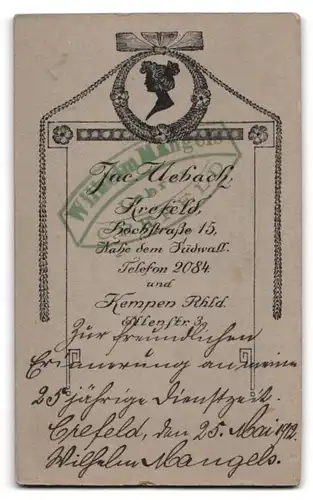 Jac. Uebach,
Krefeld,
Hochstraße 15,
Nahe dem Südwall.
Telefon 2084
und
Kempen Rhld.
Ellenstr. 3
Wilhelm Mangels
CREFELD
Zur freundlichen
Erinnerung an meine
25 jährige Dienstzeit.
Crefeld, den 25. Mai 1912.
Wilhelm Mangels.